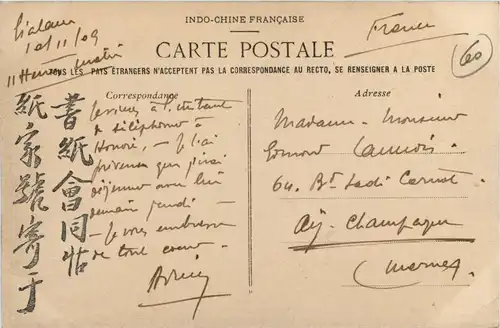 INDO-CHINE FRANÇAISE
CARTE POSTALE
TOUS LES PAYS ÉTRANGERS N'ACCEPTENT PAS LA CORRESPONDANCE AU RECTO, SE RENSEIGNER A LA POSTE
Correspondance
Adresse
10/11/09
11 matin
France
60
à l'instant
de téléphoner à
Honoré, – je l'ai
prévenu que j'irai
déjeuner avec lui
demain jeudi –
– je vous embrasse
de tout coeur –
書紙會同帖
紙家號寄于
Madame – Monsieur
64. Bd Sadi Carnot
Aÿ – Champagne
(Marne)